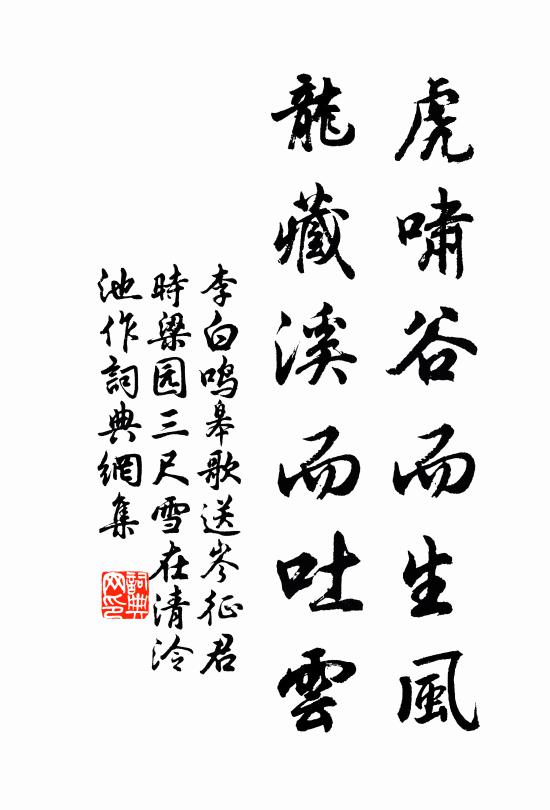 虎嘯谷而生風
龍藏溪而吐雲
李白鳴皋歌送岑征君
時梁园三尺雪在清泠
池作詞典網集
詞典
网印